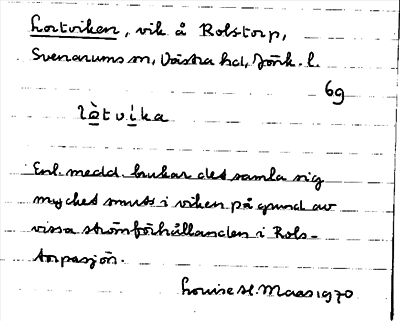 Lortviken, vik å Rolstorp,
Svenarums sn, Västra hd, Jönk. l.
69
lòtvíka
Enl. medd. brukar det samla sig
mycket smuts i viken på grund av
vissa strömförhållanden i Rols-
torpasjön.
Louise H. Maas 1970